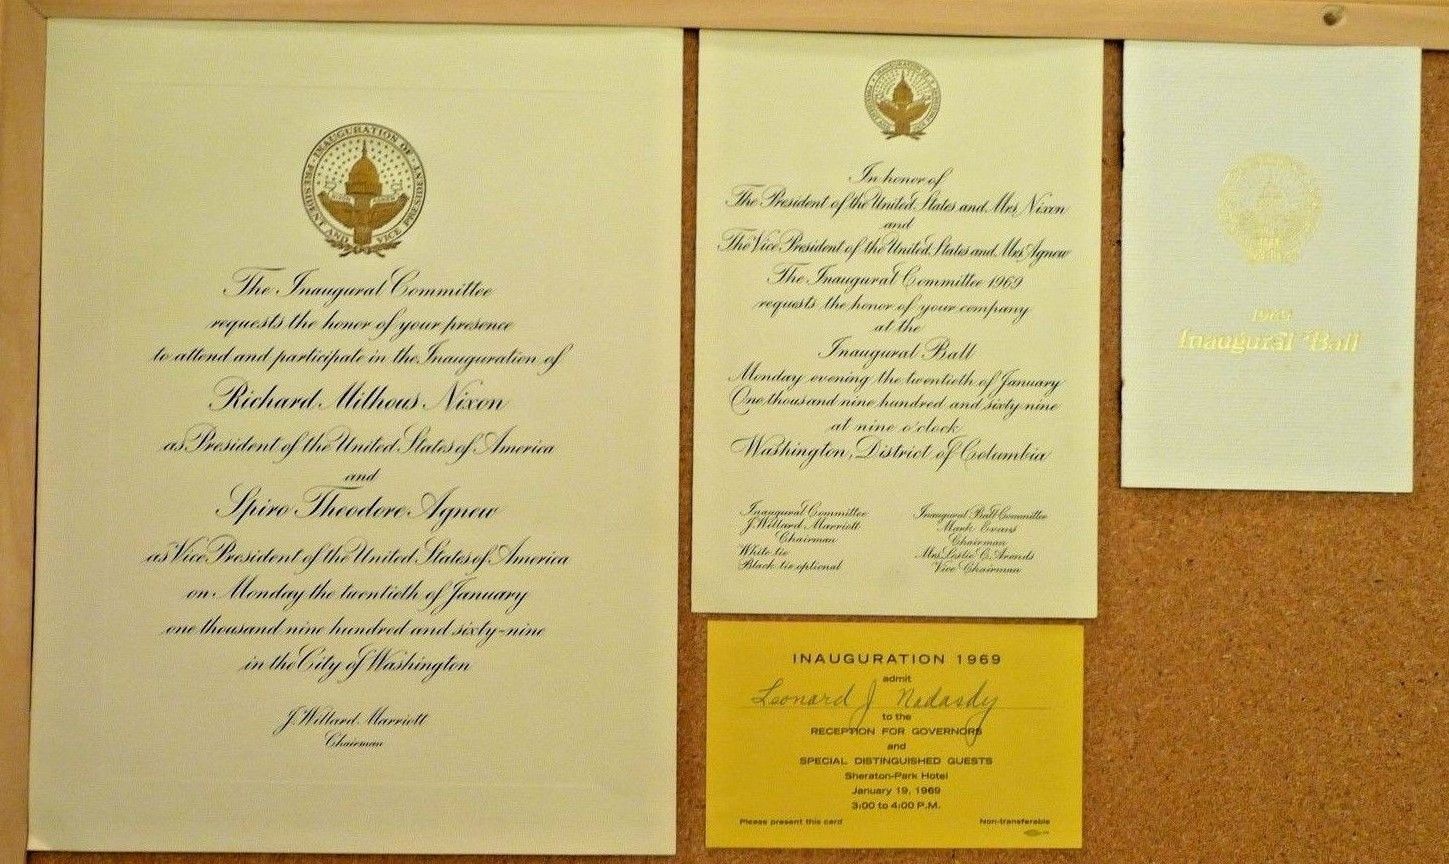 INAUGURATION OF PRESIDENT AND VICE PRESIDENT
The Inaugural Committee
requests the honor of your presence
to attend and participate in the Inauguration of
Richard Milhous Nixon
as President of the United States of America
and
Spiro Theodore Agnew
as Vice President of the United States of America
on Monday the twentieth of January
one thousand nine hundred and sixty-nine
in the City of Washington
J. Willard Marriott
Chairman
INAUGURATION OF PRESIDENT AND VICE PRESIDENT
In honor of
The President of the United States and Mrs Nixon
and
The Vice President of the United States and Mrs Agnew
The Inaugural Committee 1969
requests the honor of your company
at the
Inaugural Ball
Monday evening the twentieth of January
One thousand nine hundred and sixty nine
at nine o'clock
Washington, District of Columbia
Inaugural Committee
J. Willard Marriott
Chairman
White tie
Black tie optional
Inaugural Ball Committee
Mark Evans
Chairman
Mrs Leslie C. Arends
Vice Chairman
1969
Inaugural Ball
INAUGURATION 1969
admit
Leonard J Nadasdy
to the
RECEPTION FOR GOVERNORS
and
SPECIAL DISTINGUISHED GUESTS
Sheraton-Park Hotel
January 19, 1969
3:00 to 4:00 P.M.
Please present this card
Non-transferable